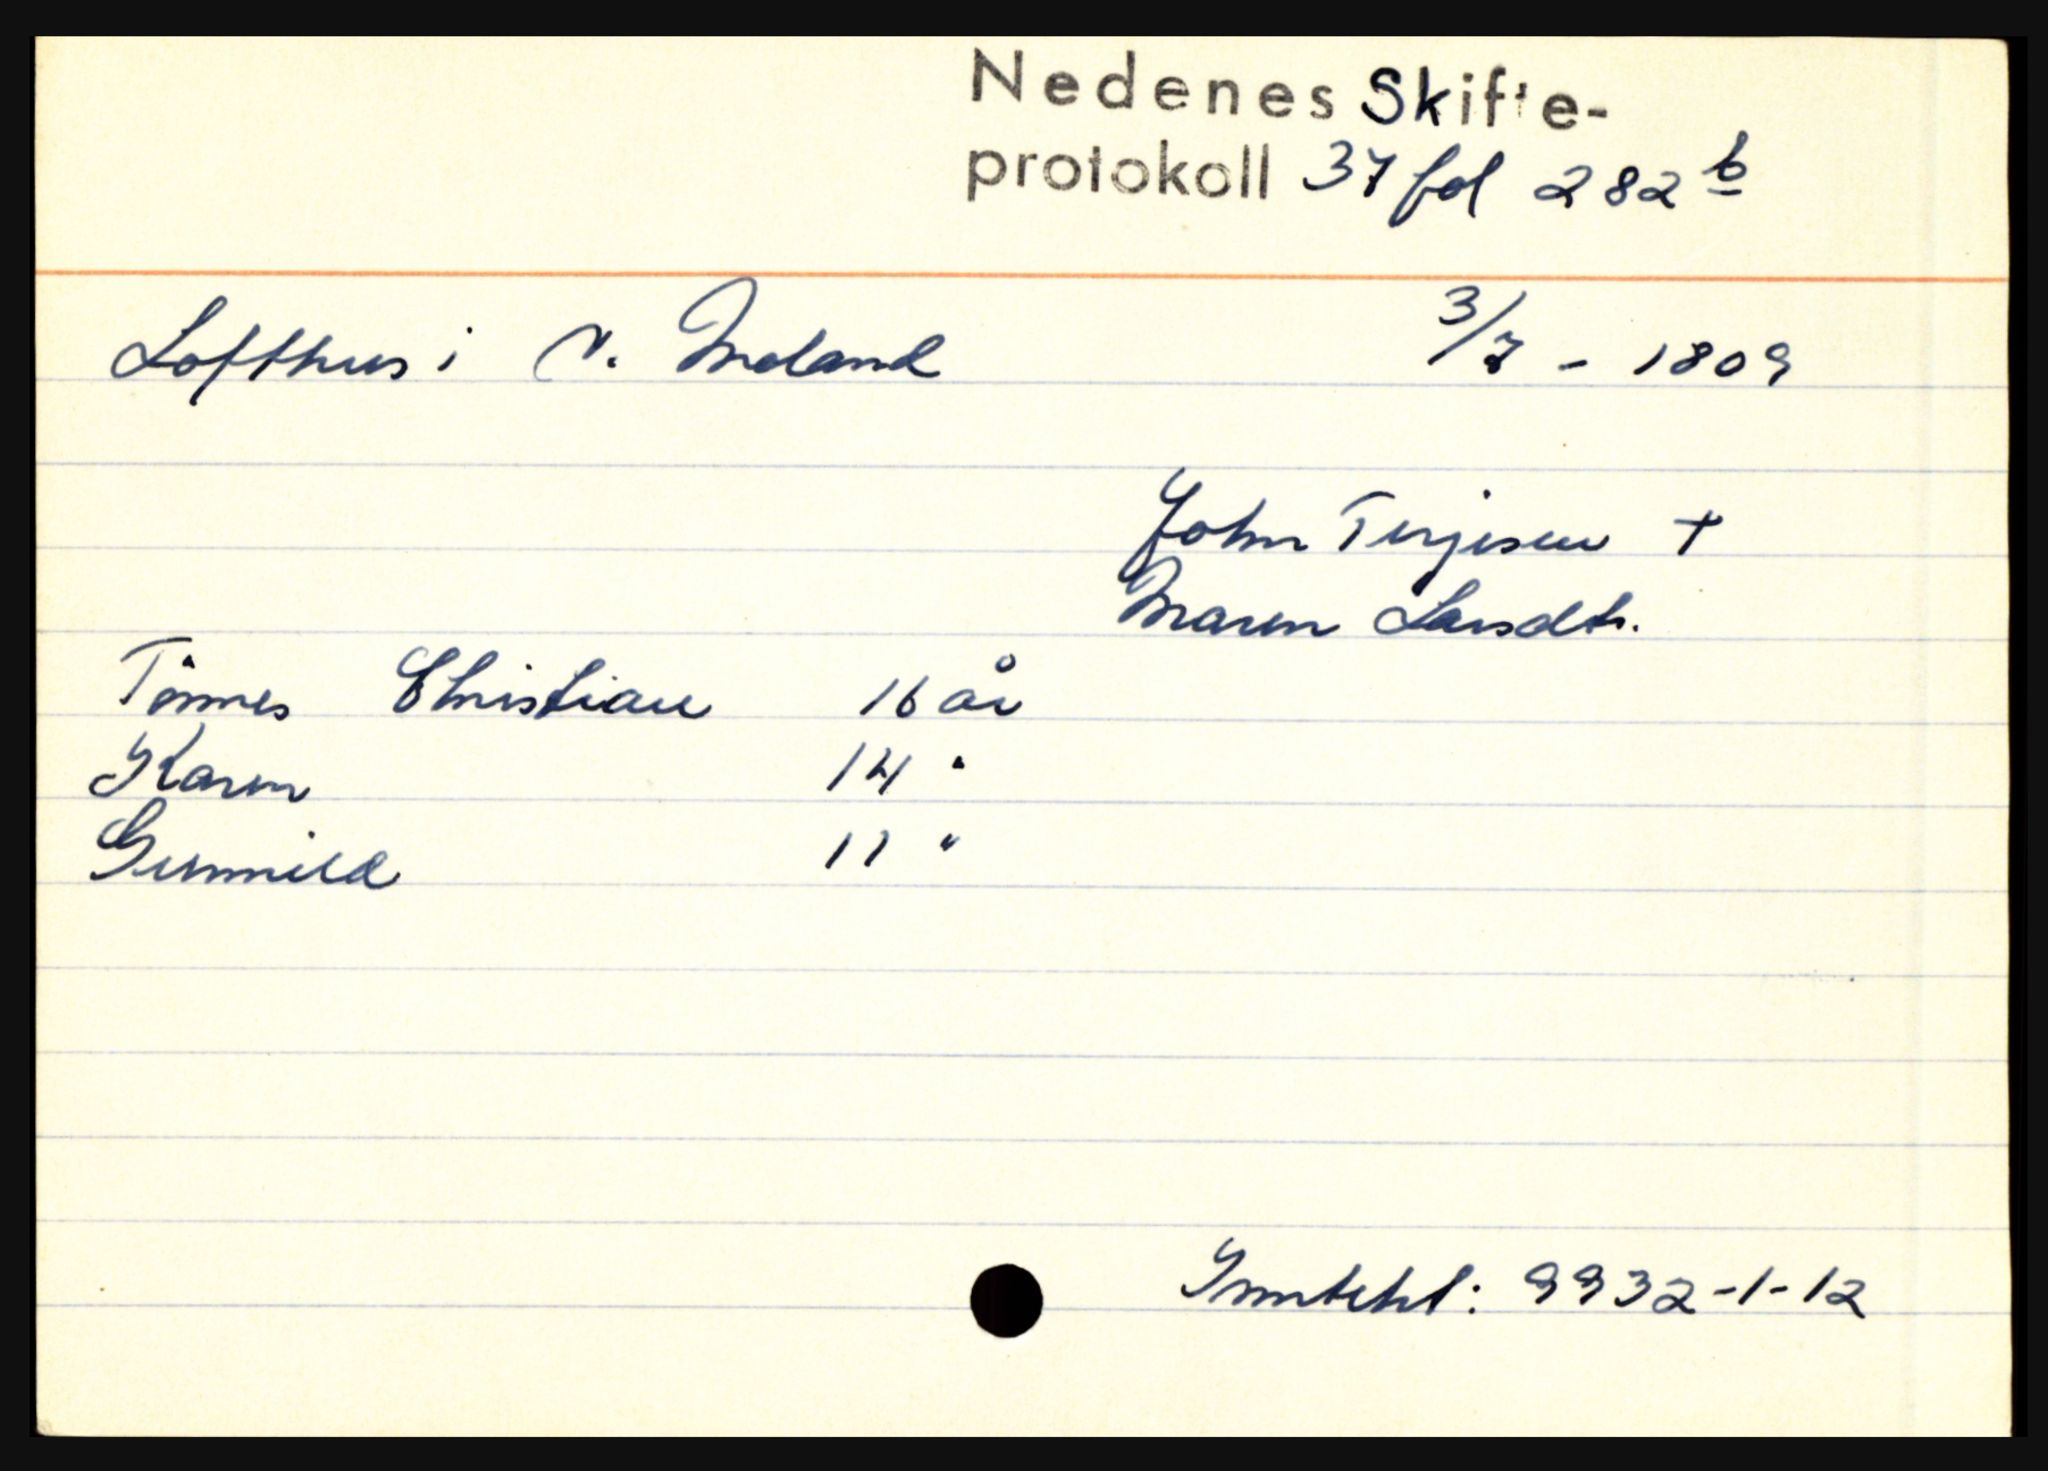 Nedenes Skifte-
protokoll 37 fol 282 b
Lofthus i V. Moland 3/7 - 1809
John Terjesen +
Maren Larsdtr.
Tönnes Christian 16 år
Karen 14 "
Gunnild 11 "
Inntekt: 9932-1-12